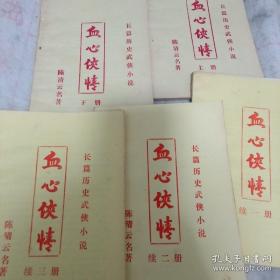 长篇历史武侠小说
血心侠情
下册
陈清云名著
长篇历史武侠小说
血心侠情
上册
陈清云名著
血心侠情
续一册
长篇历史武侠小说
血心侠情
续二册
陈清云名著
长篇历史武侠小说
血心侠情
续三册
陈清云名著
孔夫子旧书网